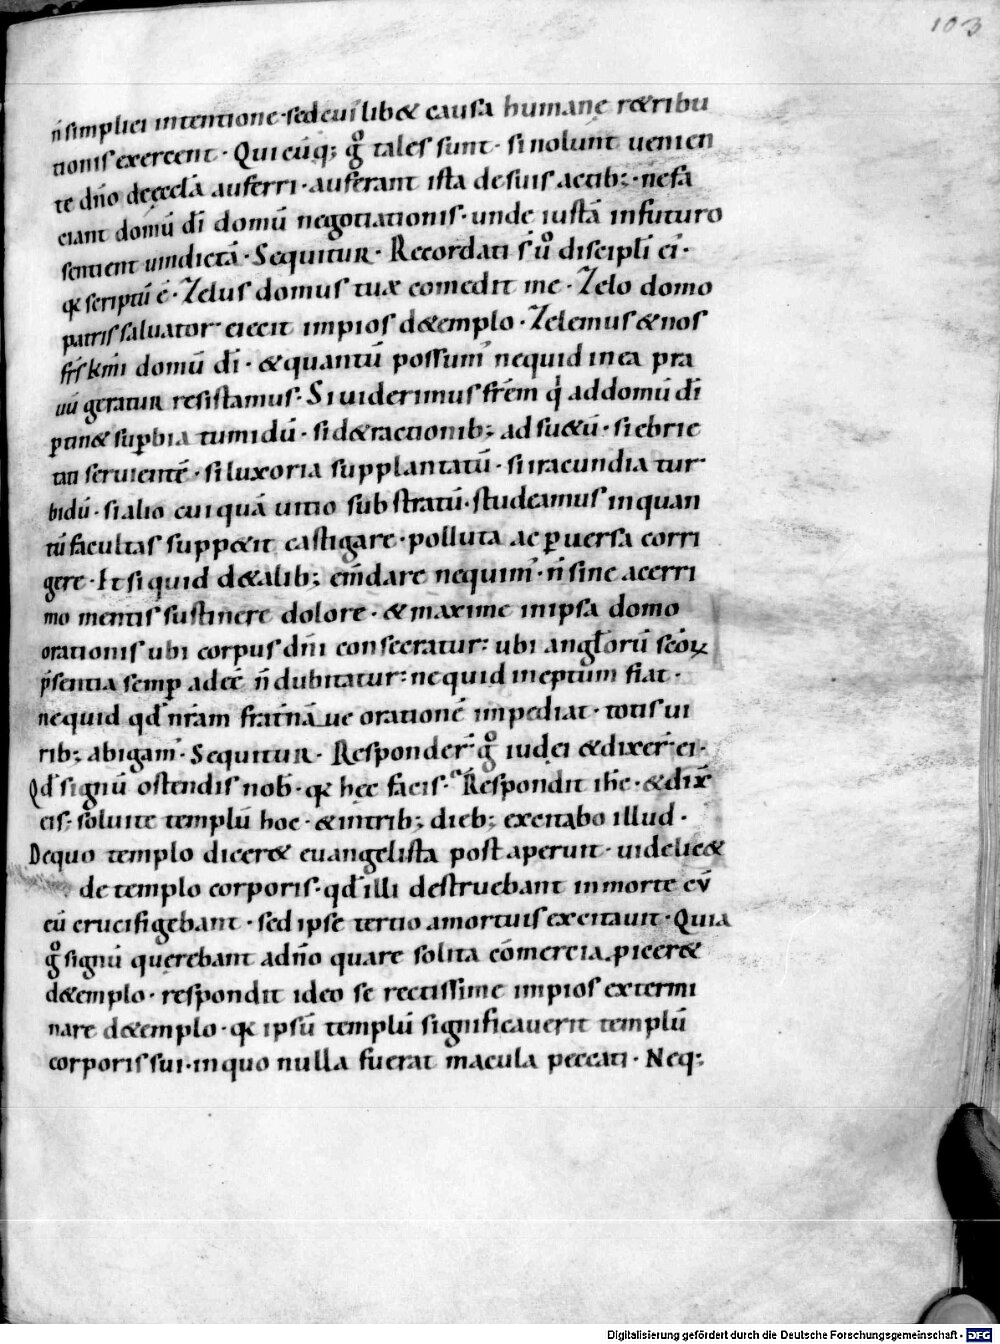 103
n̄ simplici intentione · sed cuilib& causa humanę r&ribu
tionis exercent · Qui cūq; g̊ tales sunt · si nolunt uenien
te dn̄o de ęcclā auferri · auferant ista de suis actib; · ne fa
ciant domū dī domū negotiationis · unde iustā in futuro
sentient uindictā · Sequitur · Recordati s̄ ů discipli ei ·
qa scriptū ē · Zelus domus tuæ comedit me · Zelo domo
patris saluator eiecit impios d&emplo · Zelemus & nos
fr̄s kmi domū dī · & quantū possum' nequid in ea pra
uū geratur resistamus · Si uiderimus fr̄em qi ad domū dī
ptin& supbia tumidū · si d&ractionib; adsu&ū · si ebrie
tati seruientē · si luxoria supplantatū · si iracundia tur
bidū · si alio cuiquā uitio substratū · studeamus inquan
tū facultas suppe&it castigare · polluta ac puersa corri
gere · Et si quid d&alib; em̄dare nequim' · n̄ sine acerri
mo mentis sustinere dolore · & maxime in ipsa domo
orationis ubi corpus dn̄i consecratur : ubi anglorū scōꝝ
p̄sentia semp adeē n̄ dubitatur : ne quid ineptum fiat ·
ne quid qd nr̄am fratnā ue orationē impediat · totis ui
rib; abigam' · Sequitur · Responder̄ g̊ iudei & dixer̄ ei ·
Qd signū ostendis nob · qa hęc facis · Respondit ihc · & dix̄
eis : soluite templū hoc · & intrib; dieb; excitabo illud ·
De quo templo dicer& euangelista post aperuit · uidelic&
de templo corporis · qd illi destruebant in morte cū
eū crucifigebant · sed ipse tertio a mortuis excitauit · Quia
g̊ signū querebant a dn̄o quare solita cōmercia piccer&
d&emplo · respondit ideo se rectissime impios extermi
nare d&emplo · qa ipsū templū significauerit templū
corporis sui · in quo nulla fuerat macula peccati · Neq;
Digitalisierung gefördert durch die Deutsche Forschungsgemeinschaft - DFG